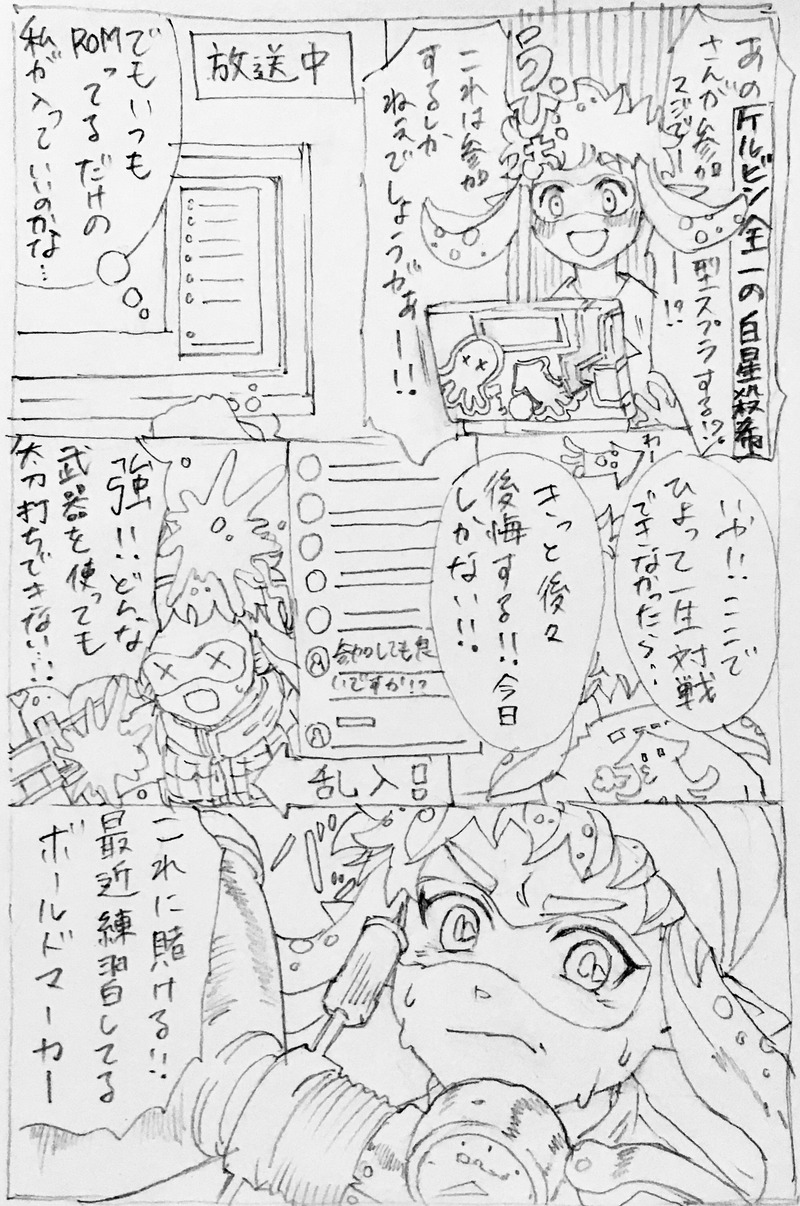 あのケルビン全一の白星殺希
さんが参加
型スプラする!?
スジで
ー!?
うひょ
これは参加
するしか
ねえでしょうがぁー!!
放送中
でもいつも
ROMってるだけの
私が入っていいのかな…
わー
いや!!ここで
ひよって一生対戦
できなかったら…
きっと後々
後悔する!!今日
しかない!!
参加しても良
いですか!?
乱入口
強!!どんな
武器を使っても
太刀打ちできない…!
これに賭ける!!
最近練習してる
ボールドマーカー